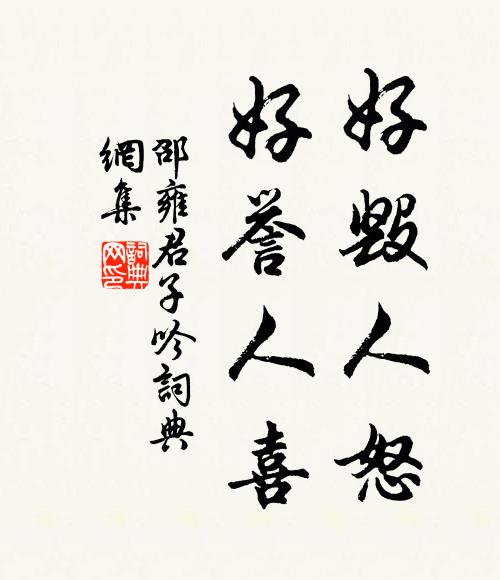 好毀人怒
好誉人喜
邵雍君子吟詞典
網集
詞典
网印